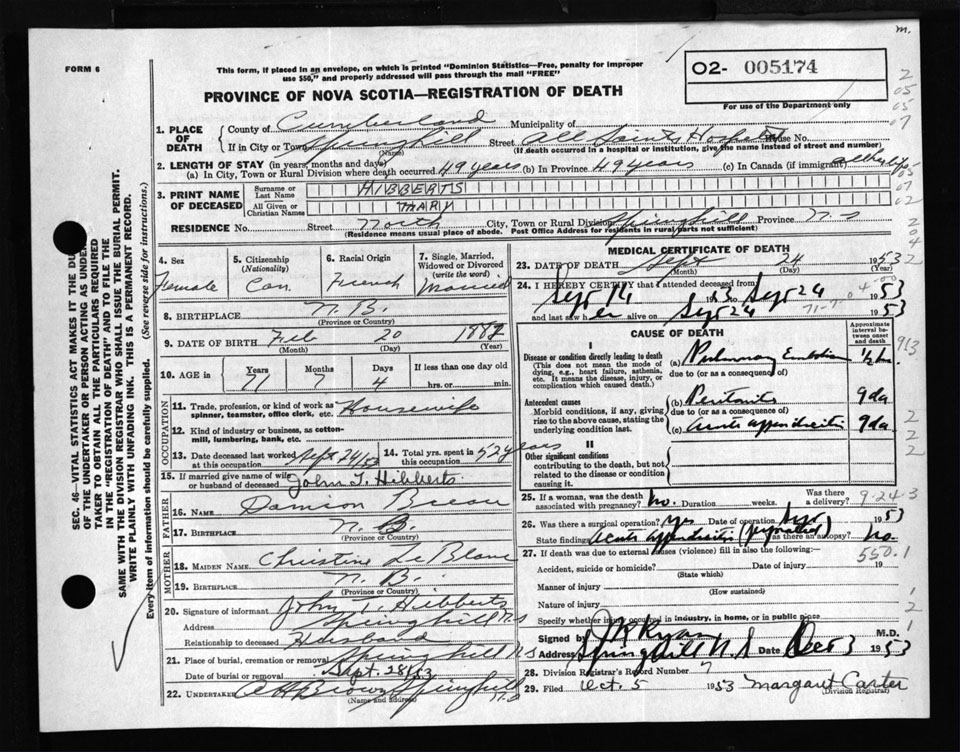 m.
FORM 6
This form, if placed in an envelope, on which is printed "Dominion Statistics—Free, penalty for improper
use $50," and properly addressed will pass through the mail "FREE"
O2- 005174
For use of the Department only
PROVINCE OF NOVA SCOTIA—REGISTRATION OF DEATH
1. PLACE OF DEATH
County of Cumberland Municipality of
If in City or Town Springhill Street All Saints Hospital House No.
(Name) (If death occurred in a hospital or institution, give the name instead of street and number)
2. LENGTH OF STAY (in years, months and days)
(a) In City, Town or Rural Division where death occurred 49 years (b) In Province 49 years (c) In Canada (if immigrant) all her life
3. PRINT NAME OF DECEASED
Surname or Last Name HIBBERTS
All Given or Christian Names MARY
RESIDENCE No. Street North City, Town or Rural Division Springhill Province N.S
(Residence means usual place of abode. Post Office Address for residents in rural parts not sufficient)
SEC. 46—VITAL STATISTICS ACT MAKES IT THE DU
OF THE UNDERTAKER OR PERSON ACTING AS UNDER-
TAKER TO OBTAIN ALL THE PARTICULARS REQUIRED
IN THE "REGISTRATION OF DEATH" AND TO FILE THE
SAME WITH THE DIVISION REGISTRAR WHO SHALL ISSUE THE BURIAL PERMIT.
WRITE PLAINLY WITH UNFADING INK. THIS IS A PERMANENT RECORD.
Every item of information should be carefully supplied. (See reverse side for instructions.)
4. Sex Female
5. Citizenship (Nationality) Can.
6. Racial Origin French
7. Single, Married, Widowed or Divorced (write the word) Married
8. BIRTHPLACE N.B.
(Province or Country)
9. DATE OF BIRTH Feb 20
(Month) (Day) (Year)
10. AGE in Years 71 Months 7 Days 4 If less than one day old
hrs. or min.
OCCUPATION
11. Trade, profession, or kind of work as spinner, teamster, office clerk, etc. Housewife
12. Kind of industry or business, as cotton-mill, lumbering, bank, etc.
13. Date deceased last worked at this occupation Sept 24/53
14. Total yrs. spent in this occupation 52 years
15. If married give name of wife or husband of deceased John T. Hibberts
FATHER
16. NAME Damison
17. BIRTHPLACE N.B.
(Province or Country)
MOTHER
18. MAIDEN NAME Christine LeBlanc
19. BIRTHPLACE N.B.
(Province or Country)
20. Signature of informant John T. Hibberts
Address Springhill N.S
Relationship to deceased Husband
21. Place of burial, cremation or removal Springhill N.S
Date of burial or removal Sept. 28/53
22. UNDERTAKER A H Brown Springhill N.S
(Name and address)
MEDICAL CERTIFICATE OF DEATH
23. DATE OF DEATH Sept 24 1953
(Month) (Day) (Year)
24. I HEREBY CERTIFY that I attended deceased from
Sept 14 1953 Sept 24 1953
and last saw her alive on Sept 24 1953
CAUSE OF DEATH
Approximate interval between onset and death
I
Disease or condition directly leading to death
(This does not mean the mode of dying, e.g., heart failure, asthenia, etc. It means the disease, injury, or complication which caused death.)
(a) Pulmonary Embolism ½ hr
due to (or as a consequence of)
Antecedent causes
Morbid conditions, if any, giving rise to the above cause, stating the underlying condition last.
(b) Peritonitis 9 da
due to (or as a consequence of)
(c) acute appendicitis 9 da
II
Other significant conditions
contributing to the death, but not related to the disease or condition causing it.
25. If a woman, was the death associated with pregnancy? no. Duration weeks. Was there a delivery?
9-24-3
26. Was there a surgical operation? yes Date of operation Sept 1953
State findings Acute appendicitis (perforated) Was there an autopsy? no
27. If death was due to external causes (violence) fill in also the following:—
550.1
Accident, suicide or homicide? Date of injury 19
(State which)
Manner of injury
(How sustained)
Nature of injury
Specify whether injury occurred in industry, in home, or in public place
Signed by J R Ryan M.D.
Address Springhill N.S Date Dec 3 1953
28. Division Registrar's Record Number 7
29. Filed Oct. 5 1953 Margaret Carter
(Division Registrar)